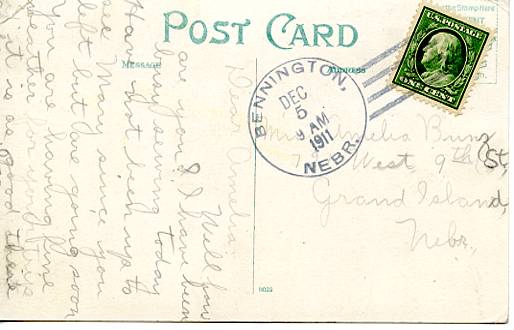 POST CARD
MESSAGE
ADDRESS
Place the Stamp Here
U.S. POSTAGE
ONE CENT
BENNINGTON,
NEBR.
DEC
5
9 AM
1911
Amelia Bunz
West 9th St,
Grand Island,
Nebr.
Dear Amelia.
Well how
are you? I have been
busy sewing today
Have not been up to
see Mary since you
left but are going soon
You are having fine
weather for
it is as good there